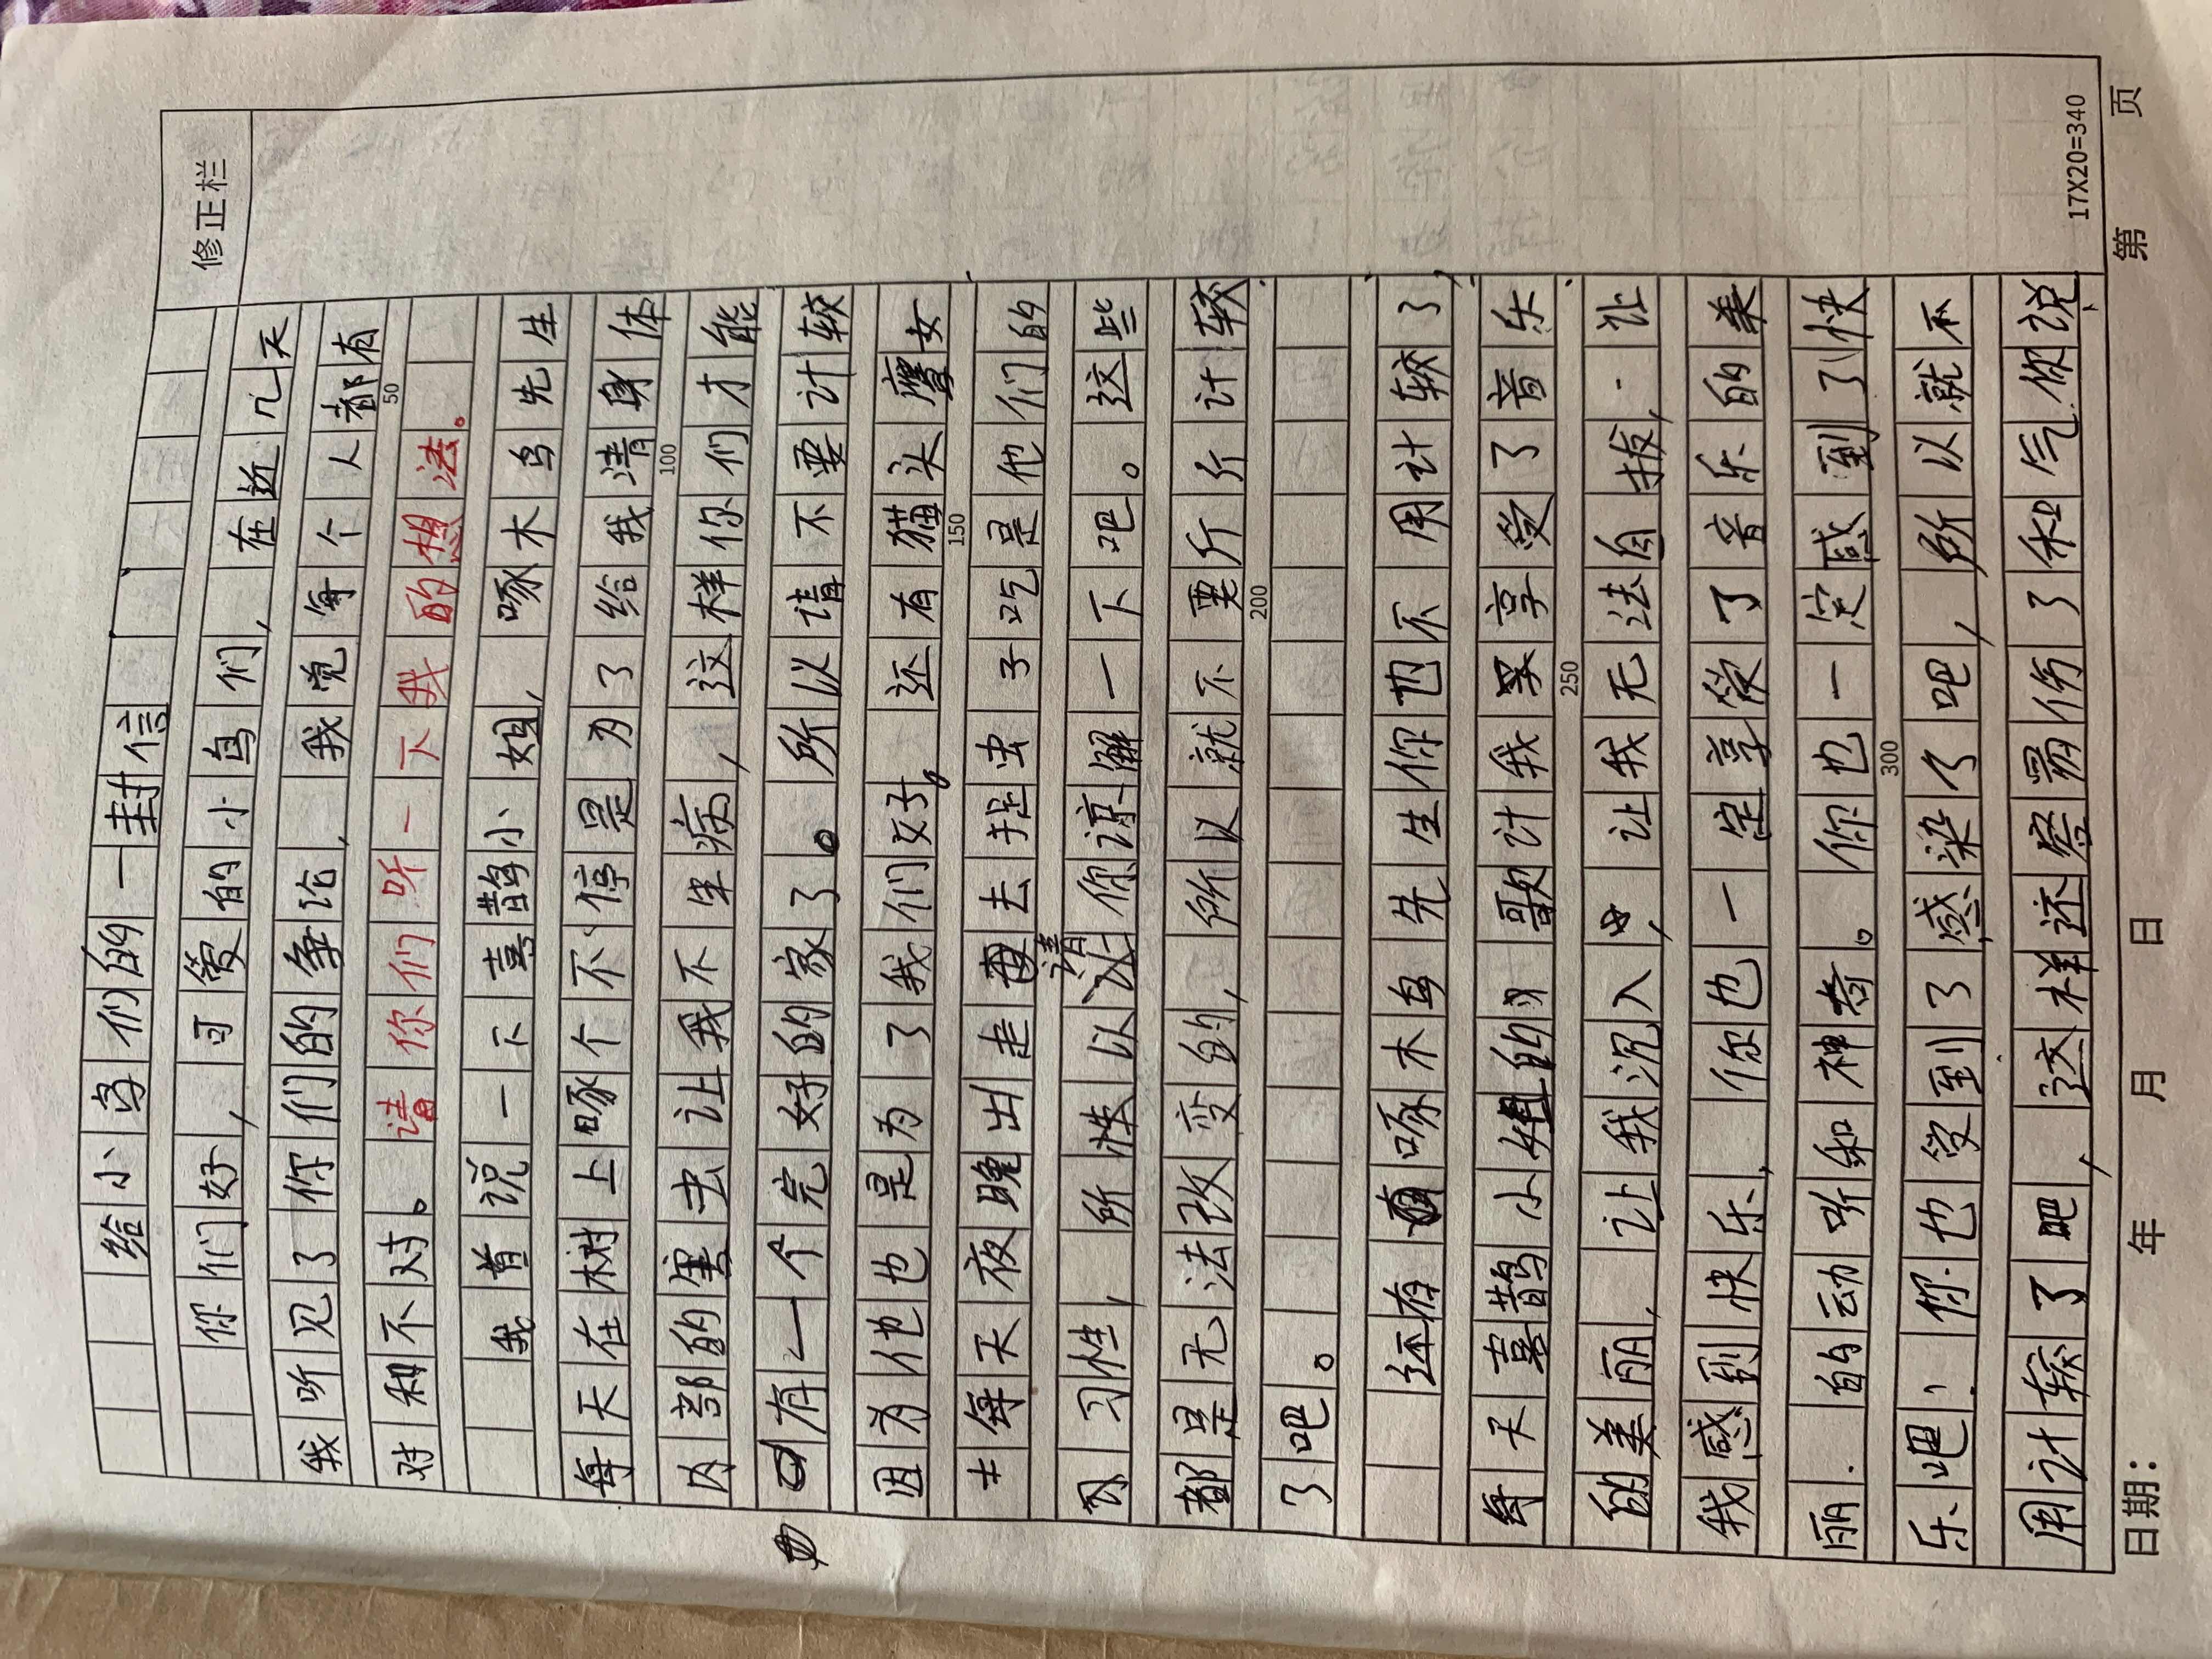 修正栏
给小鸟们的一封信
你们好，可爱的小鸟们，在近几天
我听见了你们的争论，我觉每个人都有
50
对和不对。请你们听一下我的想法。
我首说一下喜鹊小姐，啄木鸟先生
每天在树上啄个不停是为了给我清身体
100
内部的害虫让我不生病，这样你们才能
有一个完好的家了。所以请不要计较
因为他也是为了我们好。还有猫头鹰女
150
士每天夜晚出走去捉虫子吃是他们的
习性，所以请你谅解一下吧。这些
都是无法改变的，所以就不要斤斤计较
200
了吧。
还有啄木鸟先生你也不用计较了，
每天喜鹊小姐的歌计我享受了音乐
250
的美丽，让我沉入，让我无法自拔，让
我感到快乐，你也一定享受了音乐的美
丽．的动听和神奇。你也一定感到了快
300
乐吧，你也受到了感染了吧，所以就不
用计较了吧，这样还容易伤了和气你说，
17X20=340
日期： 年 月 日 第 页